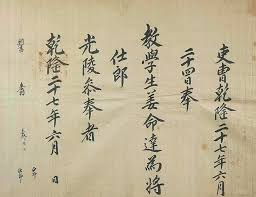 吏曹乾隆二十七年六月
二十四日奉
教學生姜命達爲將
仕郎
光陵參奉者
乾隆二十七年六月 日